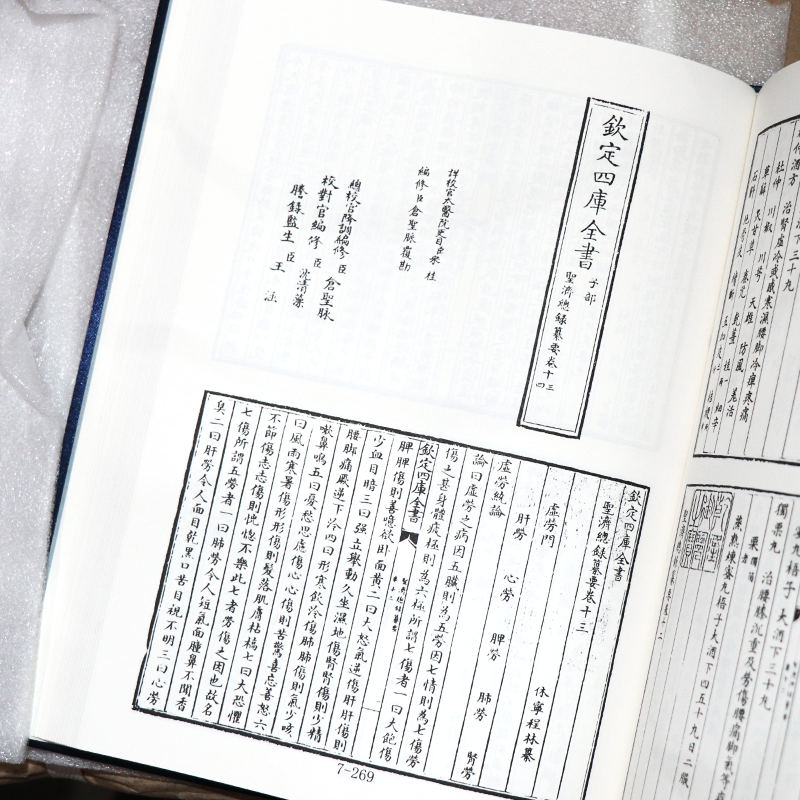 欽定四庫全書
子部
聖濟總録纂要卷十三
四
詳校官太醫院吏目臣朱桂
編修臣倉聖脉覆勘
總校官降調編修臣倉聖脉
校對官編修臣沈清藻
謄録監生臣王 
欽定四庫全書
聖濟總録纂要卷十三
休寧程林纂
虚勞門
肝勞 心勞 脾勞 肺勞 腎勞
虚勞統論
論曰虚勞之病因五臟則為五勞因七情則為七傷勞
傷之甚身體疲極則為六極所謂七傷者一曰大飽傷
脾脾傷則善噫欲卧面黄二曰大怒氣逆傷肝肝傷則
欽定四庫全書
少血目暗三曰强立舉動久坐濕地傷腎腎傷則少精
腰脚痛厥逆下冷四曰形寒飲冷傷肺肺傷則氣少咳
嗽鼻鳴五曰憂愁思慮傷心心傷則苦驚喜忘善怒六
曰風雨寒暑傷形形傷則髮落肌膚枯槁七曰大恐懼
不節傷志志傷則恍惚不樂此七者勞傷之因也故名
七傷所謂五勞者一曰肺勞令人短氣面腫鼻不聞香
臭二曰肝勞令人面目乾黑口苦目視不明三曰心勞
7-269
何酒方 治腎虚冷或感寒濕腰脚冷痺疼痛
杜仲
獨栗丸 治腰膝沉重及勞傷腰痛脚氣等疾